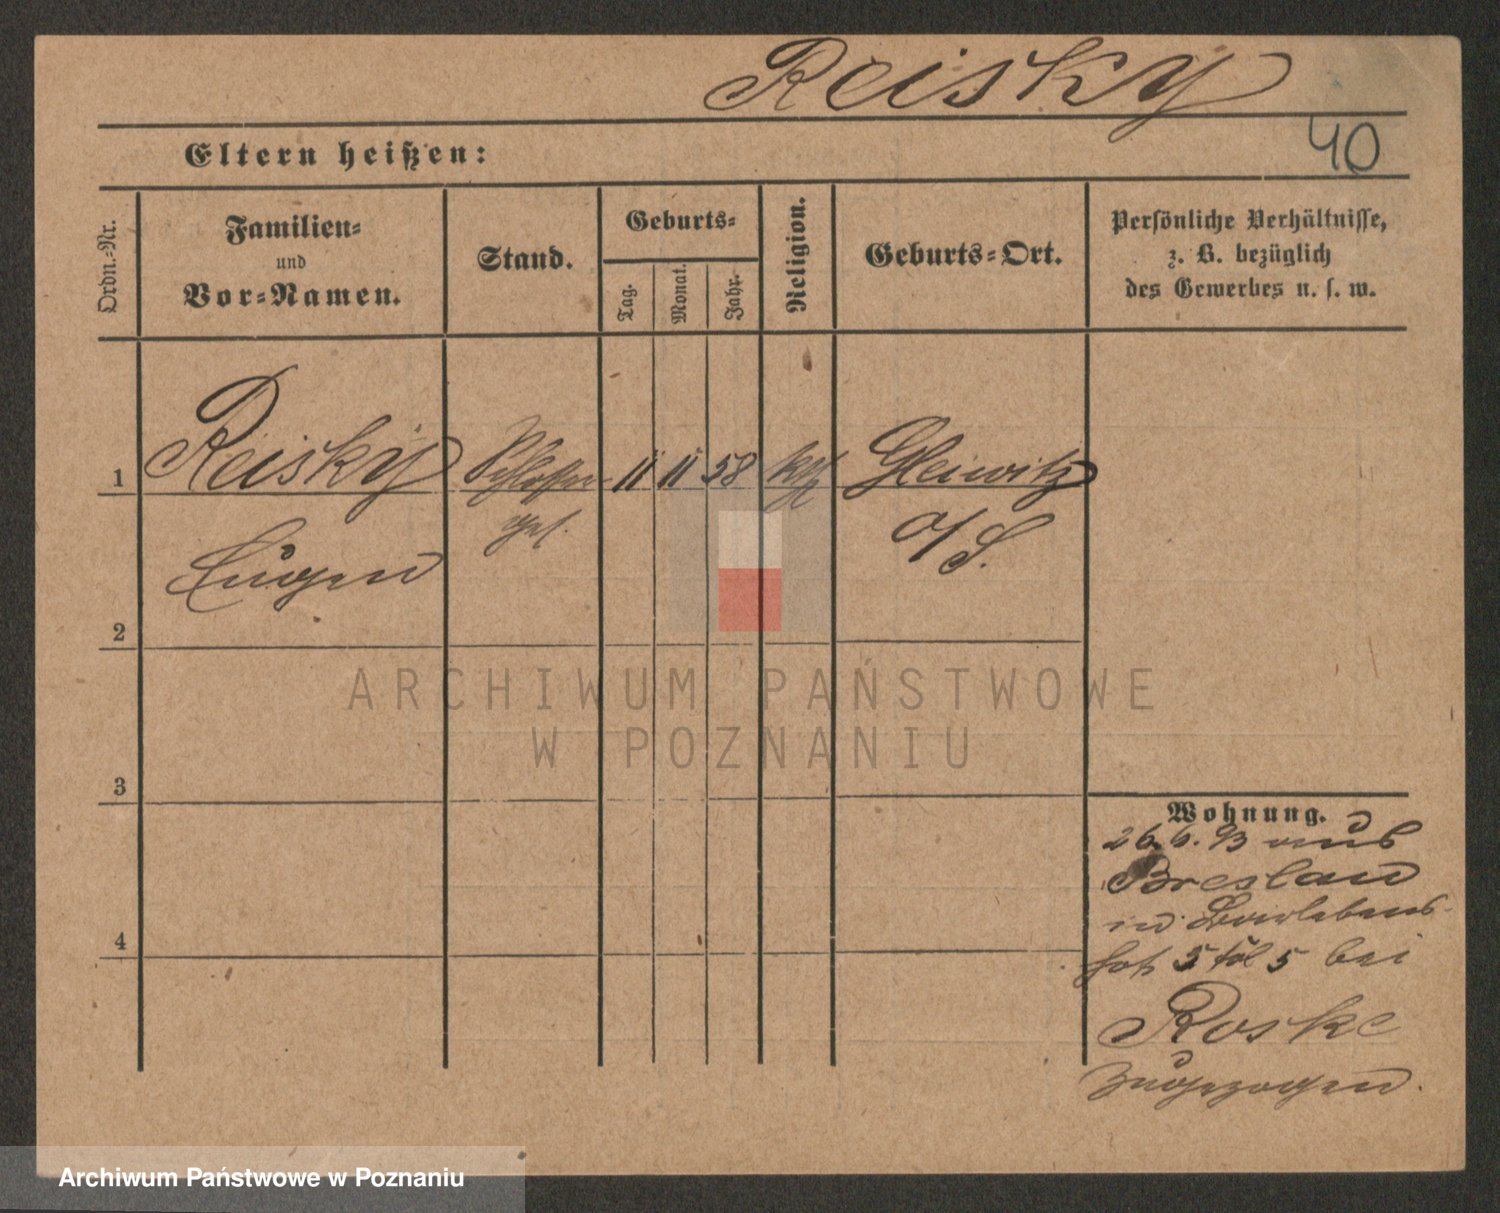 Reisky
40
Eltern heißen:
Ordn.-Nr.
Familien-
und
Vor-Namen.
Stand.
Geburts-
Tag.
Monat.
Jahr.
Religion.
Geburts-Ort.
Persönliche Verhältnisse,
z. B. bezüglich
des Gewerbes u. s. w.
1
Reisky
Schlosser
11
11
58
kth
Gleiwitz
ges.
o/S.
Eugen
2
ARCHIWUM PAŃSTWOWE
W POZNANIU
3
Wohnung.
26.6.93 aus
Breslau
in
4
hof 5 bei
Roske
zugezogen.
Archiwum Państwowe w Poznaniu